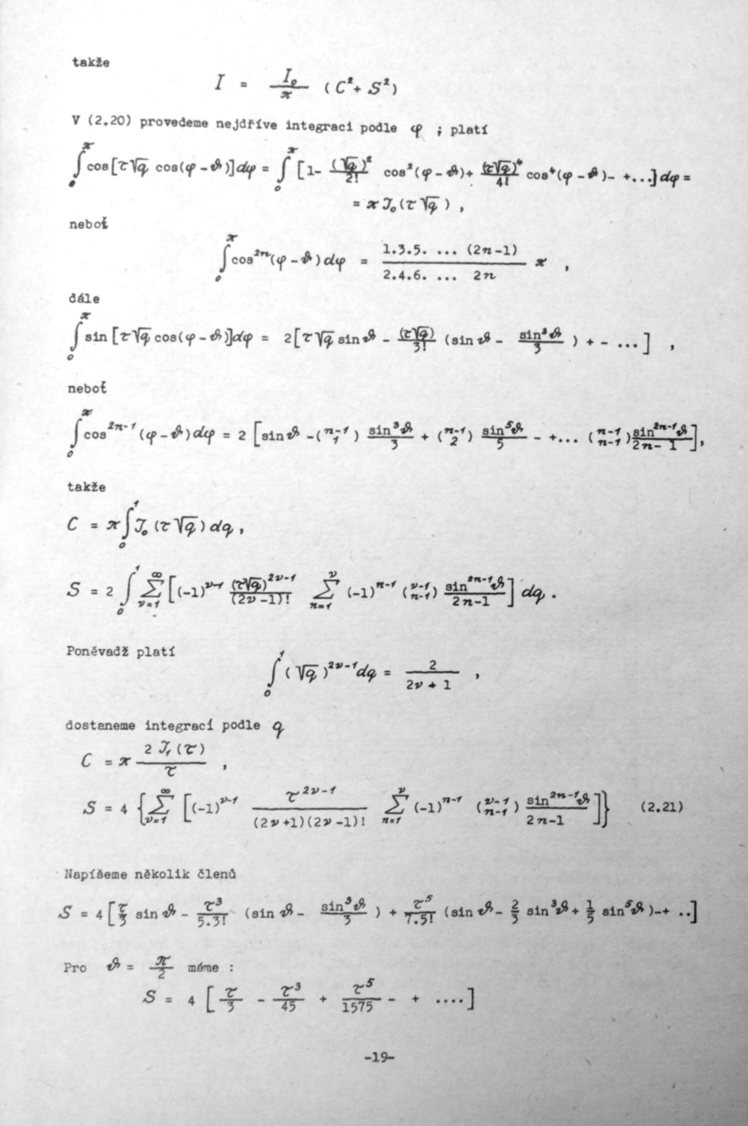 takže
I = I₀/π (C² + S²)
V (2.20) provedeme nejdříve integraci podle φ ; platí
∫₀^π cos[τ√q cos(φ - ϑ)]dφ = ∫₀^π [1- (√q)²/2! cos²(φ - ϑ)+ (τ√q)⁴/4! cos⁴(φ - ϑ)- +...]dφ =
= π J₀(τ√q) ,
neboť
∫₀^π cos²ⁿ(φ - ϑ)dφ = 1.3.5. ... (2n-1)/2.4.6. ... 2n π ,
dále
∫₀^π sin[τ√q cos(φ - ϑ)]dφ = 2[τ√q sinϑ - (τ√q)/3! (sinϑ - sin³ϑ/3 ) + - ...] ,
neboť
∫₀^π cos²ⁿ⁻¹(φ - ϑ)dφ = 2 [sinϑ -(n-1 1) sin³ϑ/3 + (n-1 2) sin⁵ϑ/5 - +... (n-1 n-1) sin²ⁿ⁻¹ϑ/2n- 1],
takže
C = π∫₀¹ J₀(τ√q)dq,
S = 2 ∫₀¹ ∑_{ν=1}^∞ [(-1)^{ν-1} (τ√q)^{2ν-1}/(2ν-1)! ∑_{n=1}^ν (-1)^{n-1} (ν-1 n-1) sin^{2n-1}ϑ/2n-1] dq .
Poněvadž platí
∫₀¹ (√q)^{2ν-1}dq = 2/2ν + 1 ,
dostaneme integrací podle q
C = π 2 J₁(τ)/τ ,
S = 4 {∑_{ν=1}^∞ [(-1)^{ν-1} τ^{2ν-1}/(2ν+1)(2ν-1)! ∑_{n=1}^ν (-1)^{n-1} (ν-1 n-1) sin^{2n-1}ϑ/2n-1]} (2.21)
Napíšeme několik členů
S = 4[τ/3 sinϑ - τ³/5.3! (sinϑ - sin³ϑ/3 ) + τ⁵/7.5! (sinϑ - 2/3 sin³ϑ + 1/5 sin⁵ϑ)-+ ..]
Pro ϑ = π/2 máme :
S = 4 [τ/3 - τ³/45 + τ⁵/1575 - + ....]
-19-